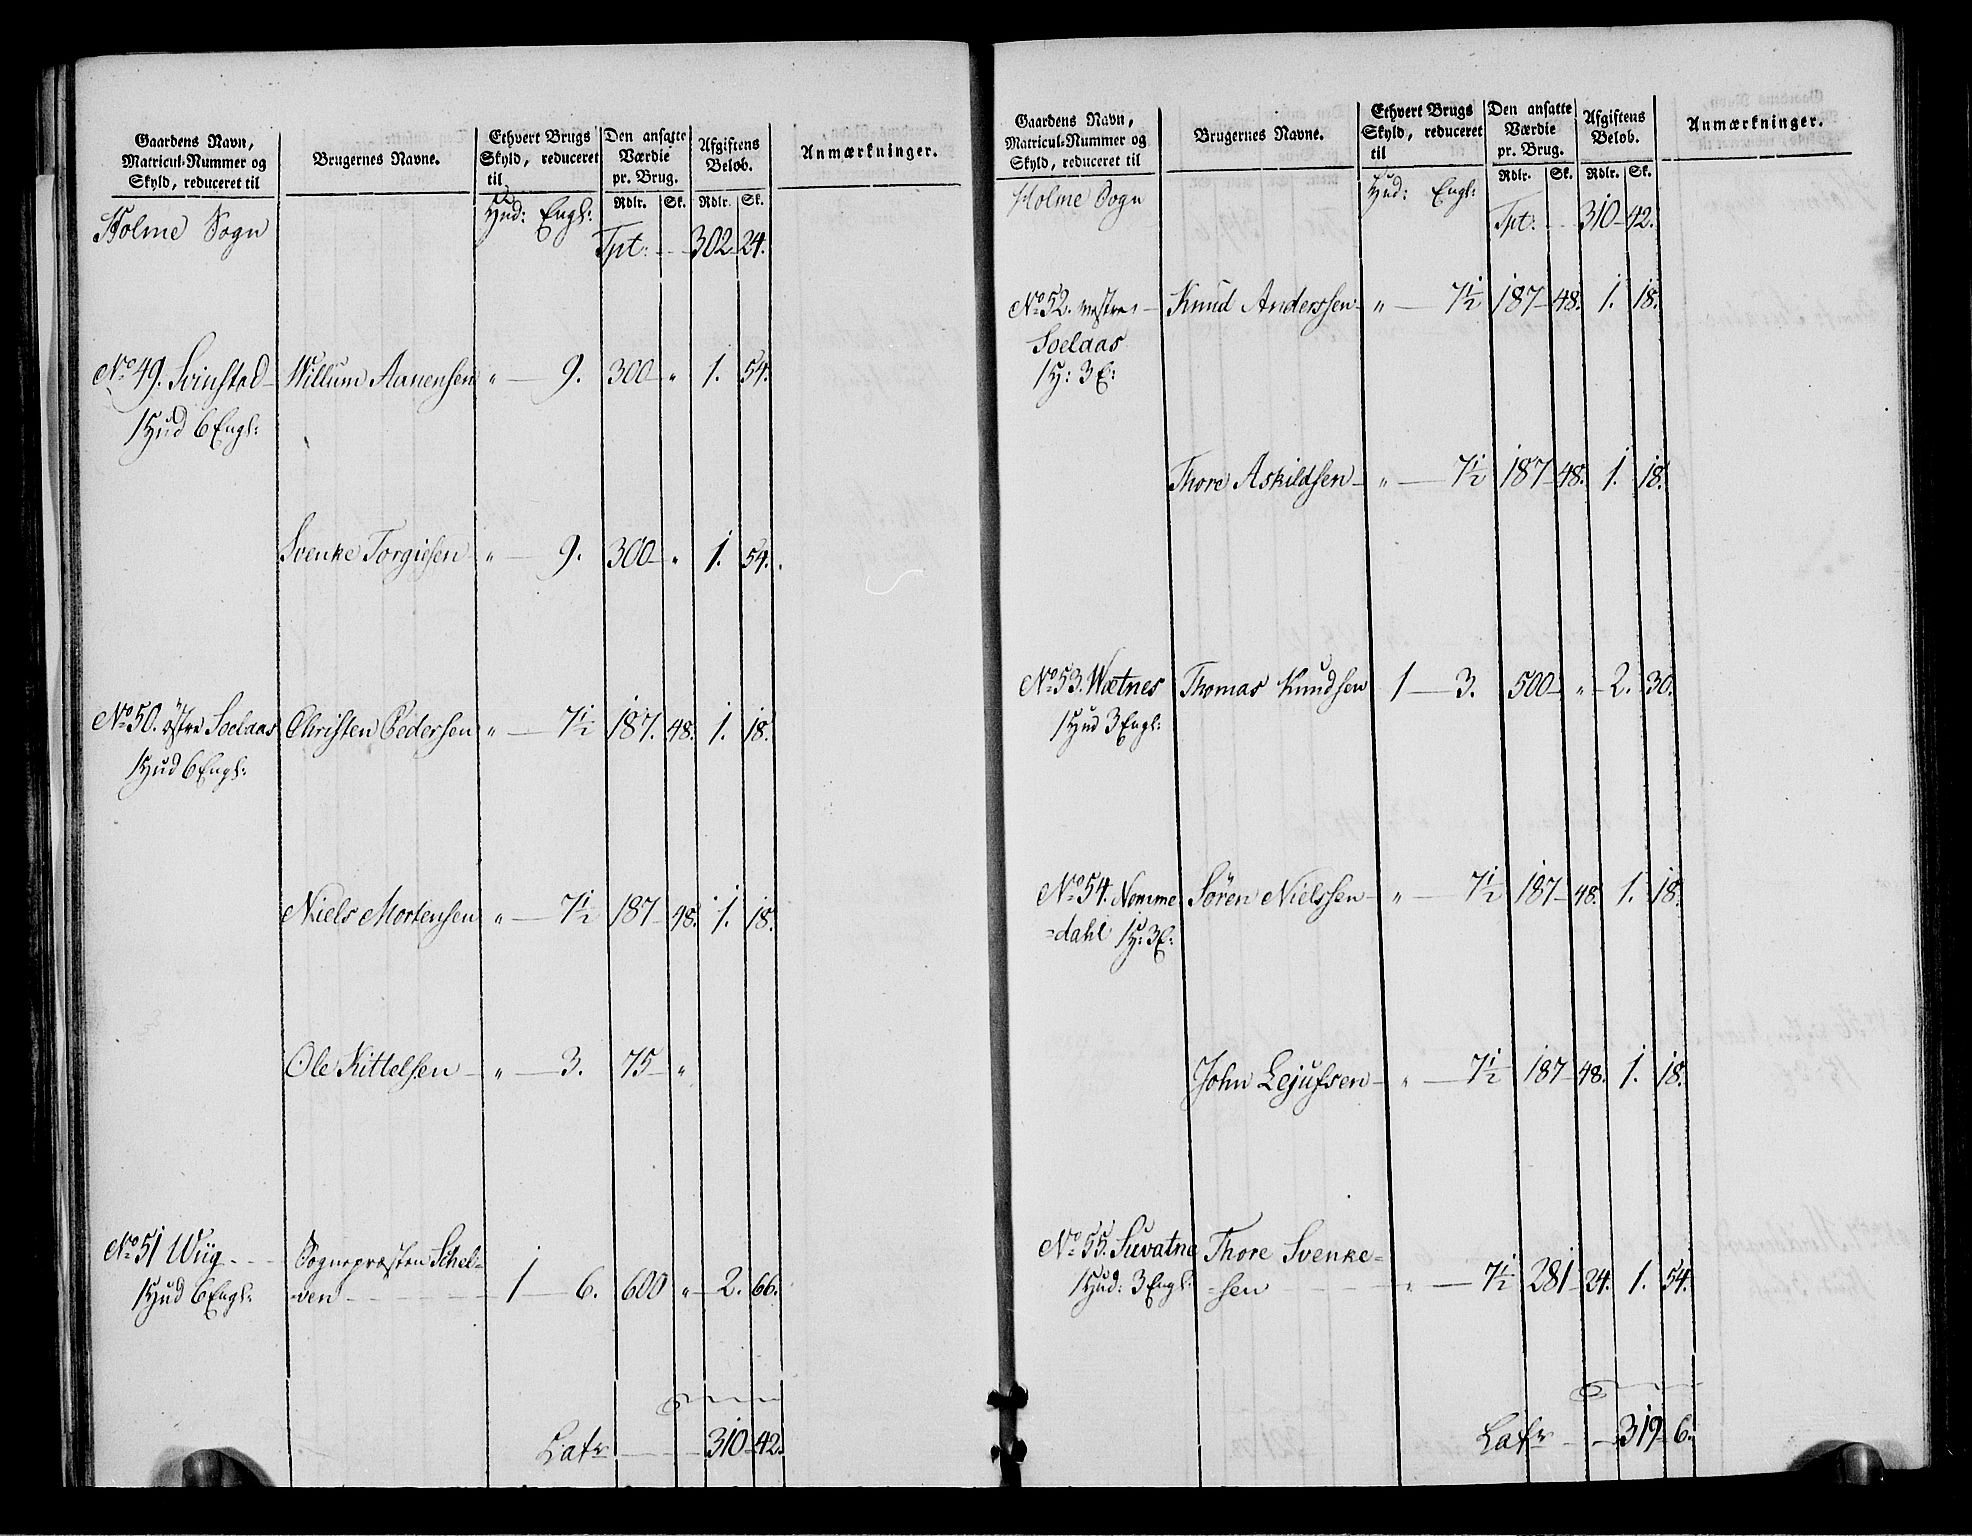 Gaardens Navn, Matricul-Nummer og Skyld, reduceret til | Brugernes Navne. | Ethvert Brugs Skyld, reduceret til | Den ansatte Værdie pr. Brug. | Afgiftens Beløb. | Anmærkninger.
Rdlr. | Sk. | Rdlr. | Sk.
Holme Sogn | Hud: Engl:
Tpt: - - 302 24.
No 49. Svinstad - Willum Aanensen " - 9. 300 - " 1. 54.
1 Hud 6 Engl:
Svenke Torgiesen " - 9. 300 - " 1. 54.
No 50. østre Soelaas Christen Pedersen " - 7½ 187. 48. 1. 18.
1 Hud 6 Engl:
Niels Mortensen " - 7½ 187 - 48. 1. 18.
Ole Kittelsen - " - 3. 75 - "
No 51 Wiig - - Sognepræsten Schel=
1 Hud 6 Engl: =ven - - - 1 - 6. 600 " - 2. 66.
Latr - - 310 - 42.
Gaardens Navn, Matricul-Nummer og Skyld, reduceret til | Brugernes Navne. | Ethvert Brugs Skyld, reduceret til | Den ansatte Værdie pr. Brug. | Afgiftens Beløb. | Anmærkninger.
Rdlr. | Sk. | Rdlr. | Sk.
Holme Sogn | Hud: Engl:
Tpt: - - 310 - 42.
No 52. vestre - Knud Anderssen - " - 7½ 187 - 48. 1. 18.
Soelaas
1 H: 3 E:
Thore Askildsen - " - 7½ 187 - 48. 1. 18.
No 53. Wætnes Thomas Knudsen 1 - 3. 500 - " - 2. 30.
1 Hud 3 Engl:
No 54. Nomme Sören Nielssen - " - 7½ 187 - 48. 1. 18.
=dahl 1 H: 3 E:
John Lejufsen - " - 7½ 187 - 48. 1. 18.
No 55. Suvatne Thore Svenke=
1 Hud: 3 Engl: =sen - - - " - 7½ 281 - 24. 1. 54.
Latr - - 319 - 6.